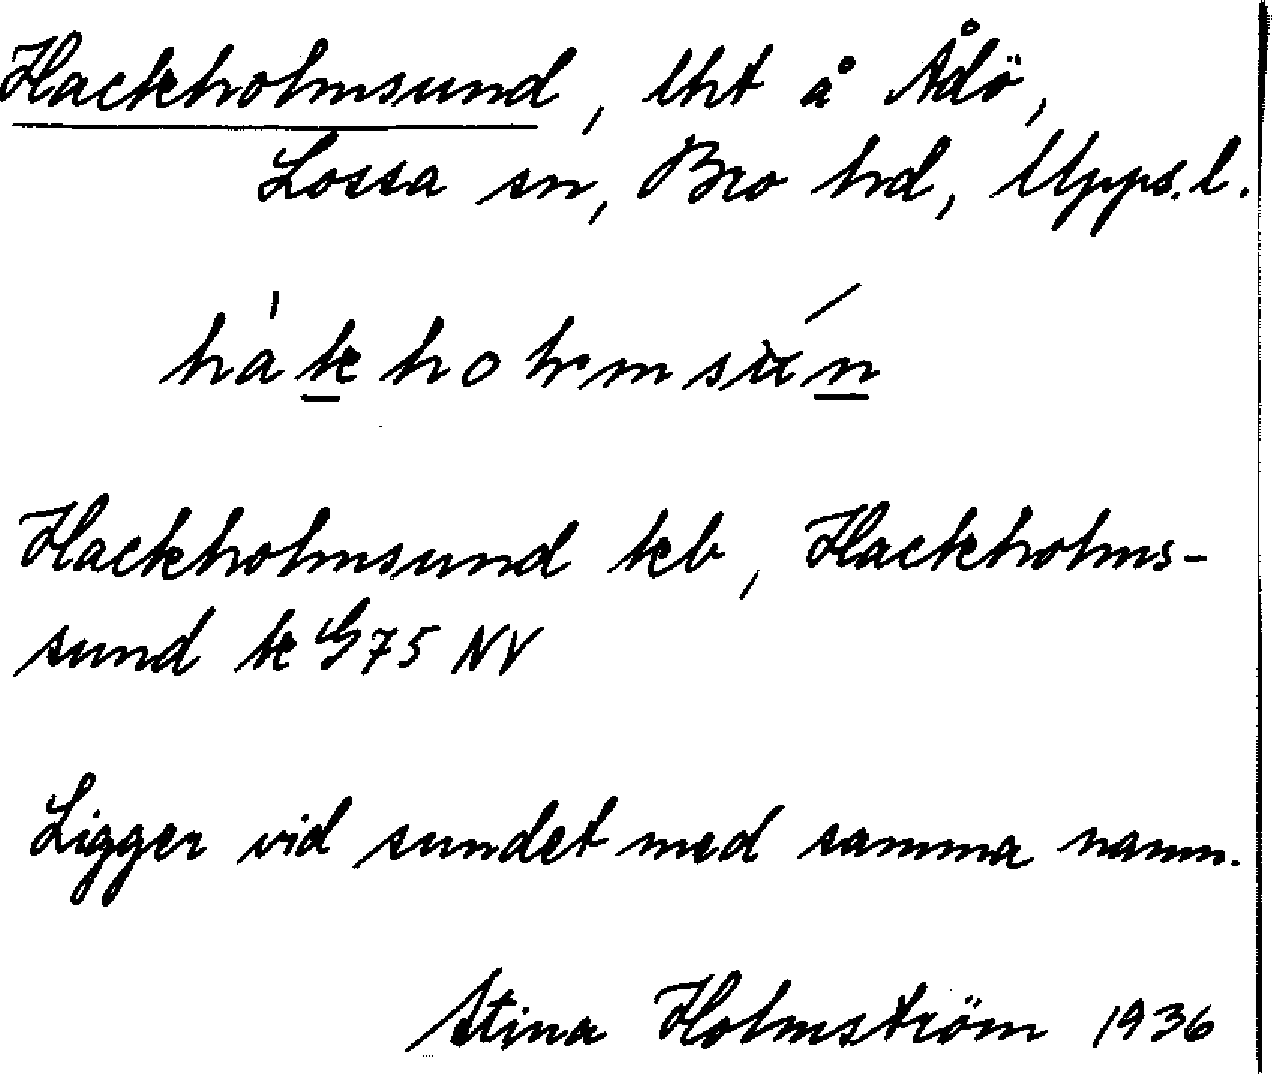 Hackholmsund, lht å Ådö,
Lossa sn, Bro hd, Upps. l.
Hackholmsund kb, Hackholms-
sund k G75 NV
Ligger vid sundet med samma namn.
Stina Holmström 1936